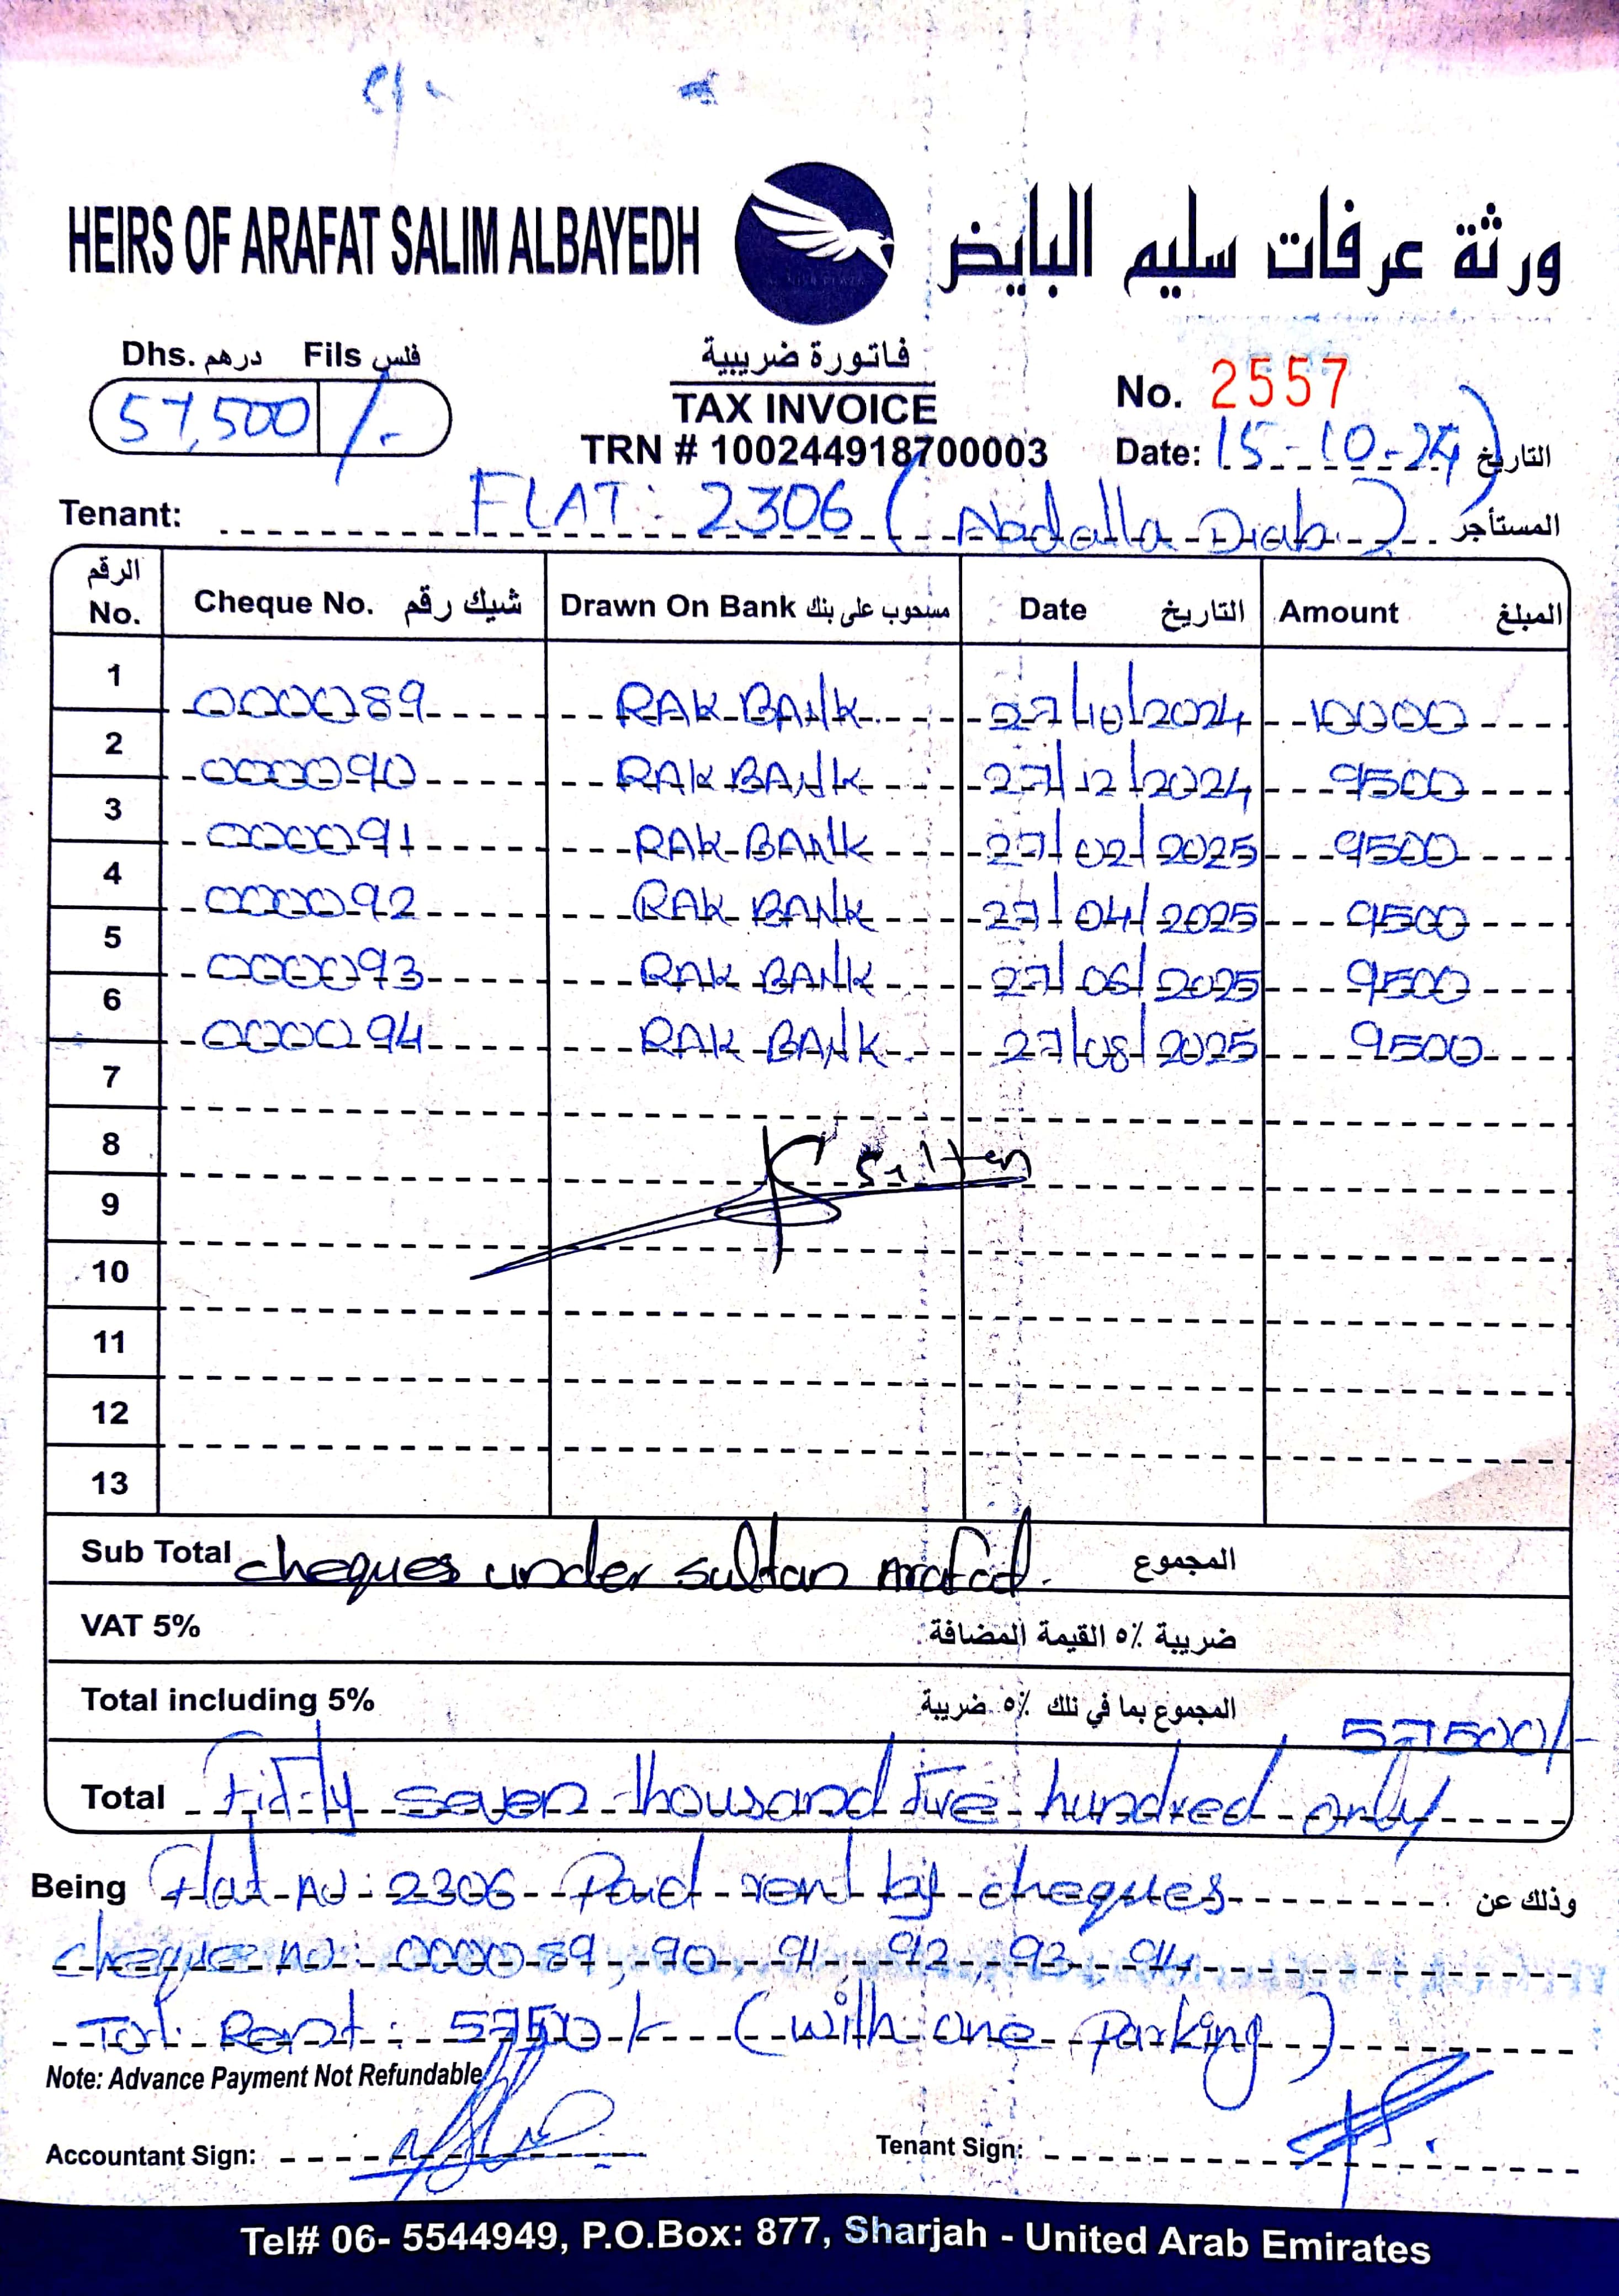 HEIRS OF ARAFAT SALIM ALBAYEDH ورثة عرفات سليم البايض
Dhs. درهم Fils فلس
57,500 /-
فاتورة ضريبية
TAX INVOICE
TRN # 100244918700003
No. 2557
Date: 15-10-24 التاريخ
Tenant: FLAT: 2306 (Abdalla Diab) المستأجر
الرقم No. Cheque No. شيك رقم Drawn On Bank مسحوب على بنك Date التاريخ Amount المبلغ
1 000089 RAK BANK 27/10/2024 10000
2 000090 RAK BANK 27/12/2024 9500
3 000091 RAK BANK 27/02/2025 9500
4 000092 RAK BANK 27/04/2025 9500
5 000093 RAK BANK 27/06/2025 9500
6 000094 RAK BANK 27/08/2025 9500
7
8
9
10
11
12
13
Sub Total cheques under sultan Arafat. المجموع
VAT 5% ضريبة ٥٪ القيمة المضافة
Total including 5% المجموع بما في ذلك ٥٪ ضريبة 57500/-
Total Fifty seven thousand five hundred only
Being Flat No: 2306 Paid rent by cheques وذلك عن
cheque no: 000089, 90, 91, 92, 93, 94
Tot. Rent: 57500/- (with one parking)
Note: Advance Payment Not Refundable
Accountant Sign: Tenant Sign:
Tel# 06- 5544949, P.O.Box: 877, Sharjah - United Arab Emirates